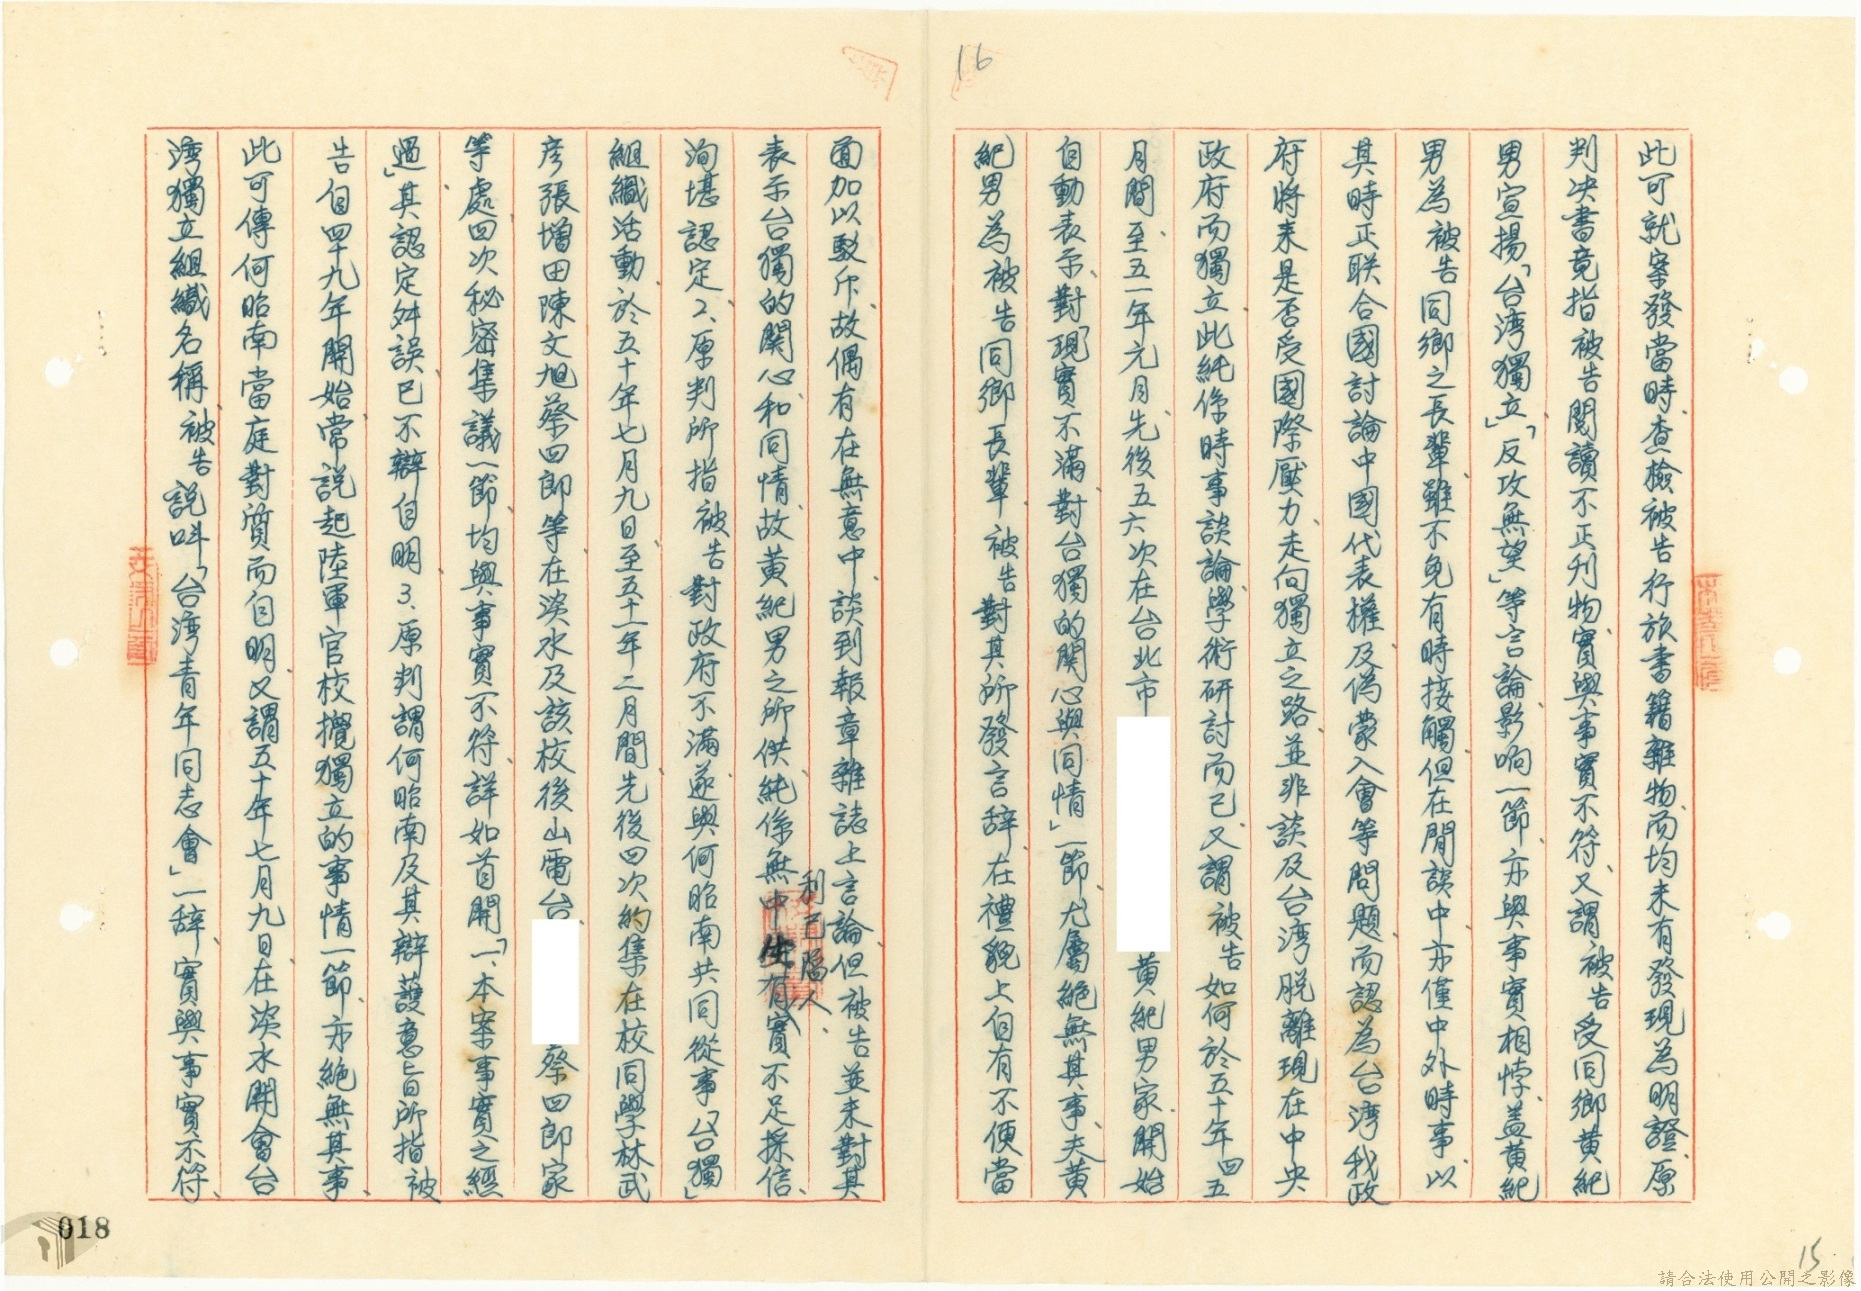 16
此可就案發當時、查檢被告行旅書籍雜物、而均未有發現為明證、原
判决書竟指被告閱讀不正刋物、實與事實不符、又謂被告受同鄉黃紀
男宣揚「台湾獨立」「反攻無望」等言論影响一節、亦與事實相悖、盖黃紀
男為被告同鄉之長輩、雖不免有時接觸但在閒談中亦僅中外時事、以
其時正联合國討論中國代表權、及偽蒙入會等問題、而認為台湾我政
府將来是否受國際壓力、走向獨立之路、並非談及台湾脱離現在中央
政府而獨立、此純係時事談論、學術研討而已、又謂被告如何於五十年四五
月間至五一年元月、先後五六次在台北市
黃紀男家、開始
自動表示、對「現實不滿、對台獨的関心與同情」一節、尤屬絕無其事、夫黃
紀男為被告同鄉長輩、被告對其所發言辞、在禮貌上自有不便當
面加以駁斥、故偶有在無意中、談到報章雜誌上言論、但被告並未對其
表示台獨的関心和同情、故黃紀男之所供、純係無中生有、實不足採信、
利己陷人、
洵堪認定、2、原判所指被告對政府不滿、遂與何昭南共同從事「台獨」
組織活動、於五十年七月九日至五十一年二月間、先後四次約集在校同學林武
彦張增田陳文旭蔡四郎等在淡水及該校後山電台、
蔡四郎家
等處四次秘密集議一節、均與事實不符、詳如首開「一、本案事實之經
過」其認定舛誤已不辯自明、3、原判謂何昭南及其辯護意旨所指被
告自四十九年開始常說起陸軍官校攪獨立的事情一節、亦絕無其事、
此可傳何昭南當庭對質而自明、又謂五十年七月九日在淡水開會台
湾獨立組織名稱、被告說呌「台湾青年同志會」一辞、實與事實不符、
018
15
請合法使用公開之影像